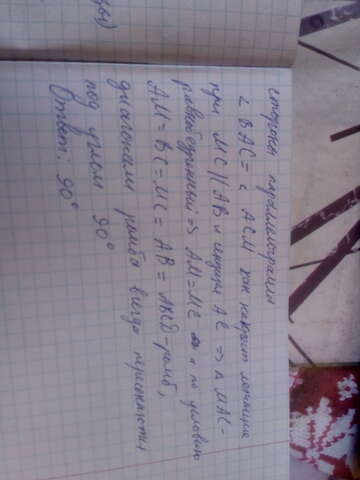 стороны параллелограмма
∠ BAC = ∠ ACM как накрест лежащие
при MC || AB и секущей AC ⇒ △ MAC -
равнобедренный ⇒ AM = MC а по условию
AM = BC = MC = AB = ABCD - ромб,
диагонали ромба всегда пересекаются
под углом 90°
Ответ: 90°